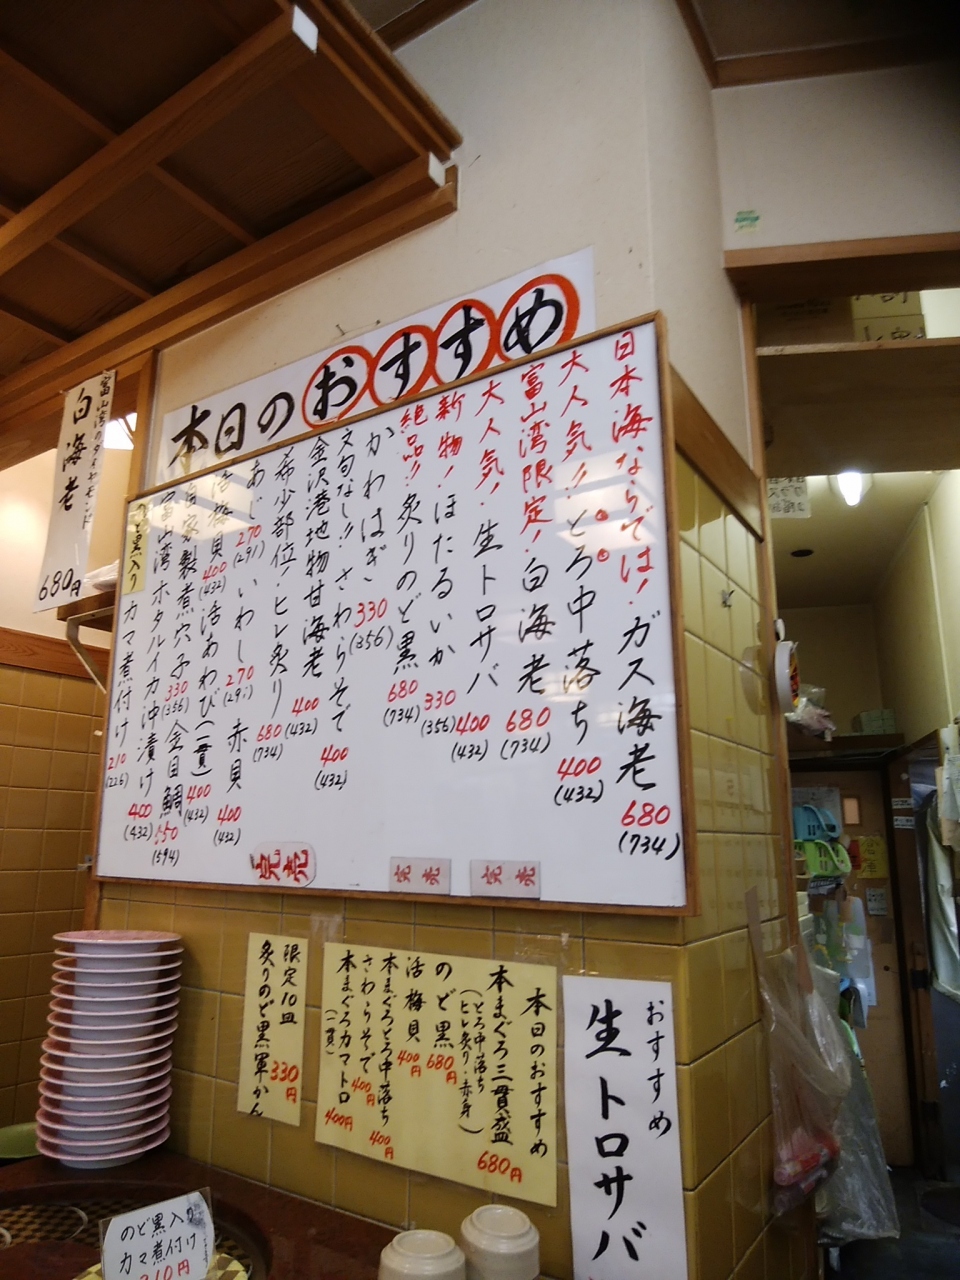 本日のおすすめ
日本海ならでは!ガス海老 680 (734)
大人気!!とろ中落ち 400 (432)
富山湾限定!白海老 680 (734)
大人気!生トロサバ 400 (432)
新物!ほたるいか 330 (356)
絶品!!炙りのど黒 680 (734)
かわはぎ 330 (356)
文句なし!!さわらそで 400 (432)
金沢港地物甘海老 400 (432)
希少部位!ヒレ炙り 680 (734)
あじ 270 (291) いわし 270 (291) 赤貝 400 (432)
活梅貝 400 (432) 活あわび(一貫) 400 (432)
自家製煮穴子 330 (356) 金目鯛 550 (594)
富山湾ホタルイカ沖漬け 400 (432)
のど黒入り カマ煮付け 210 (226)
完売
完売
完売
富山湾のダイヤモンド
白海老
680円
限定10皿
炙りのど黒軍かん
330円
本日のおすすめ
本まぐろ三貫盛 680円
(とろ中落ち
ヒレ炙り・赤身)
のど黒 680円
活梅貝 400円
本まぐろとろ中落ち 400円
さわらそで 400円
本まぐろカマトロ 400円
(一貫)
おすすめ
生トロサバ
のど黒入り
カマ煮付け
210円